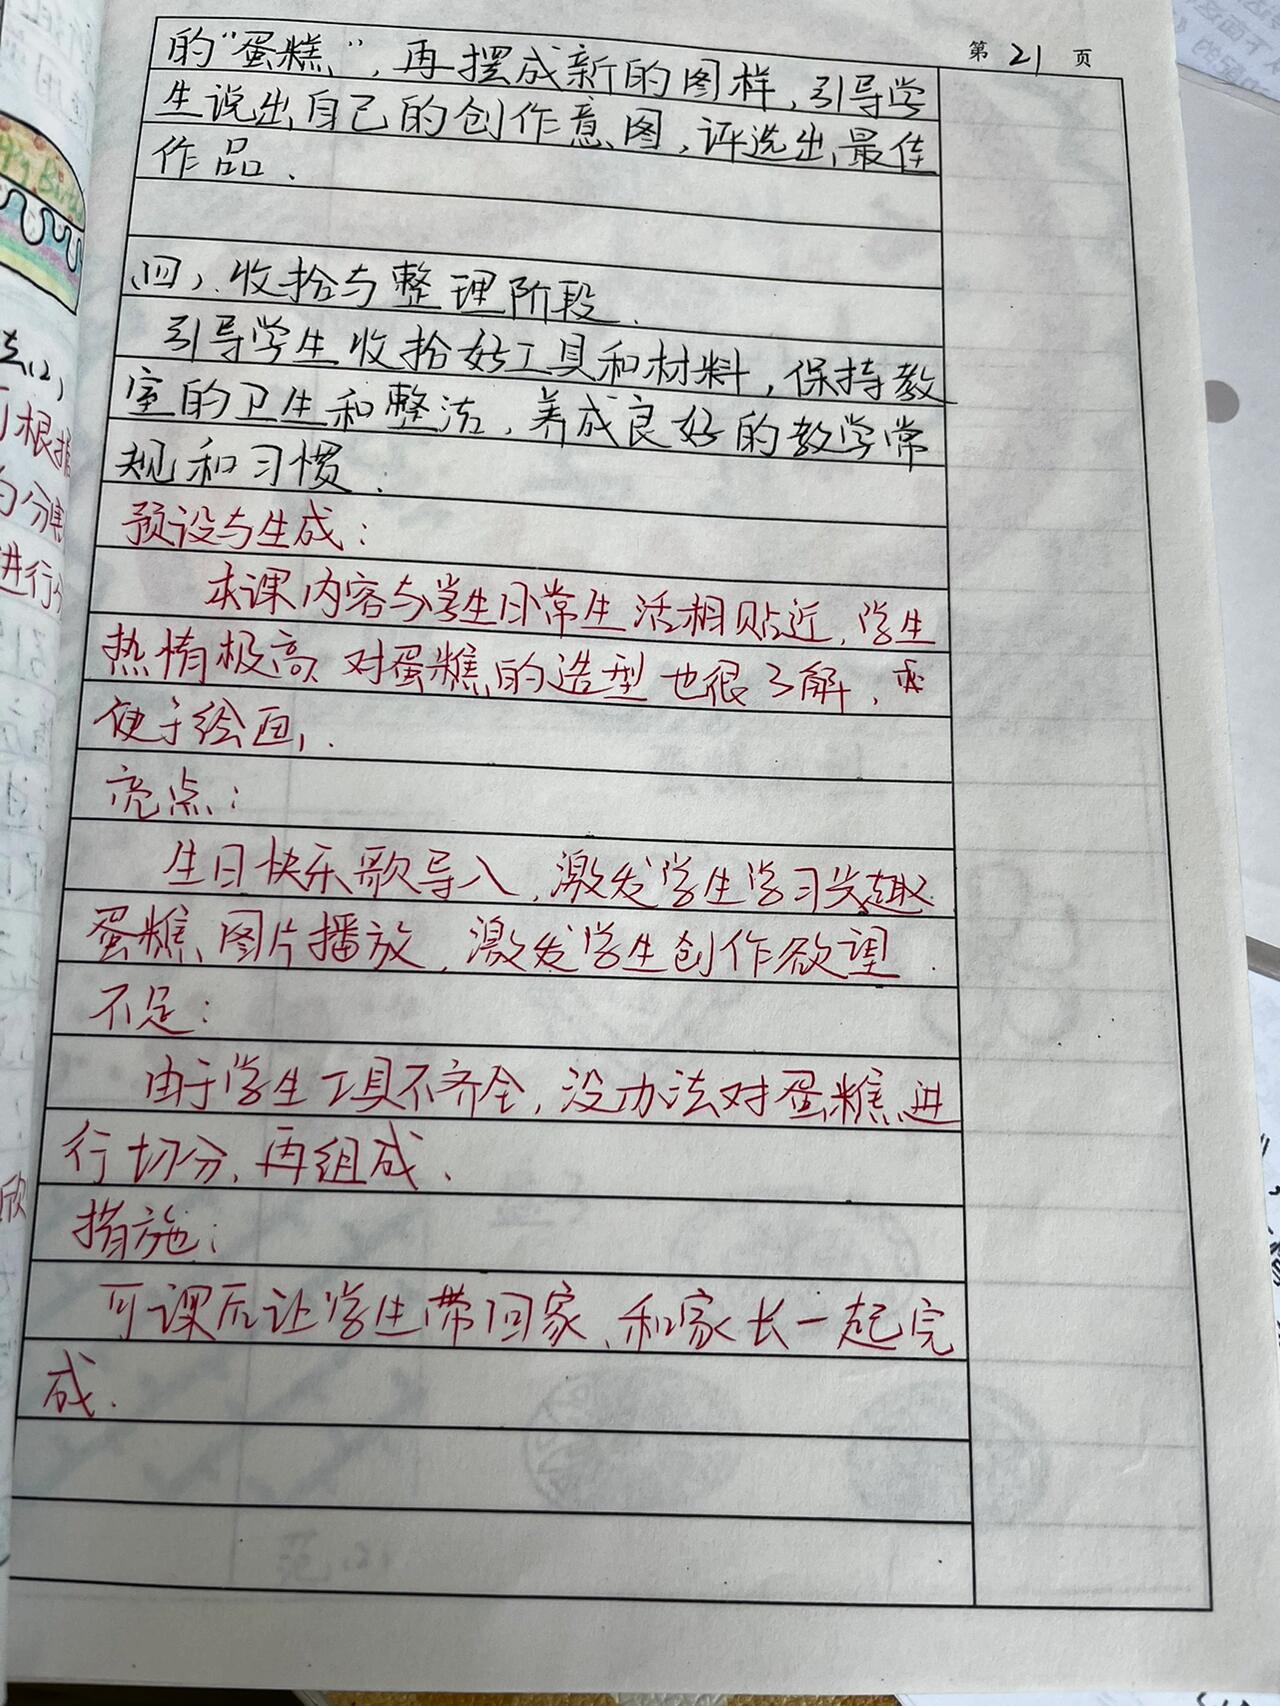 第 21 页
的“蛋糕”，再摆成新的图样，引导学
生说出自己的创作意图，评选出最佳
作品.
四、收拾与整理阶段.
引导学生收拾好工具和材料，保持教
室的卫生和整洁，养成良好的教学常
规和习惯.
预设与生成：
本课内容与学生日常生活相贴近，学生
热情极高 对蛋糕的造型也很了解，
便于绘画.
亮点：
生日快乐歌导入，激发学生学习兴趣
蛋糕图片播放，激发学生创作欲望.
不足：
由于学生工具不齐全，没办法对蛋糕进
行切分，再组成.
措施：
可课后让学生带回家，和家长一起完
成.